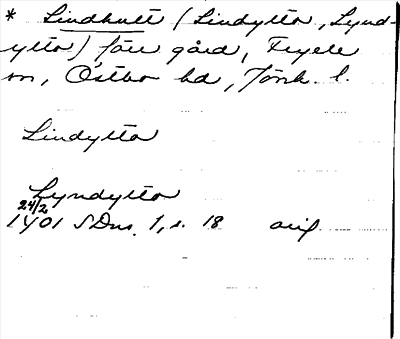 * Lindhult (Lindytta, Lynd-
ytta) förr gård, Fryele
sn, Östbo hd, Jönk. l.
Lindytta
Lyndytta
24/2
1401 SDns. 1, s. 18 orig.